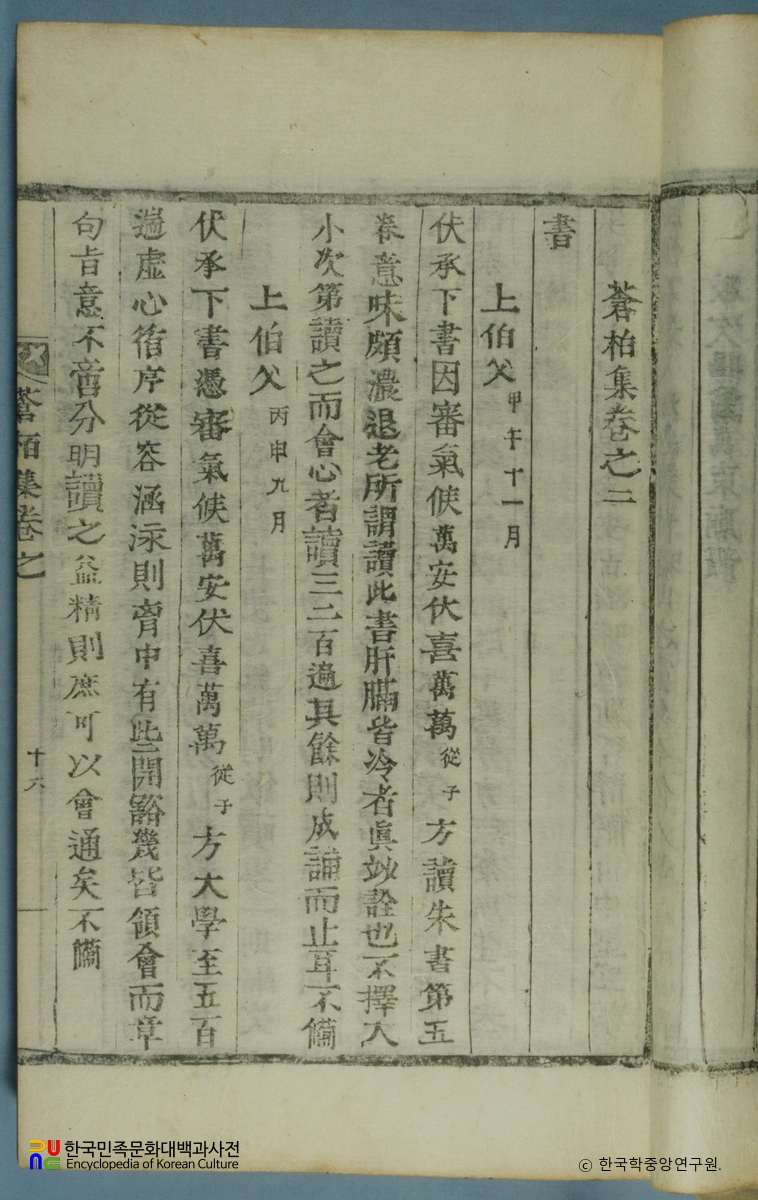 蒼柏集卷之二
書
上伯父 甲午十一月
伏承下書因審氣候萬安伏喜萬萬從子方讀朱書第五
卷意味頗濃退老所謂讀此書肝膈皆冷者眞妙詮也不擇大
小次第讀之而會心者讀三二百遍其餘則成誦而止耳不備
上伯父 丙申九月
伏承下書憑審氣候萬安伏喜萬萬從子方大學至五百
遍虛心循序從容涵泳則胷中有些開豁幾皆領會而章
句旨意不啻分明讀之益精則庶可以會通矣不備
蒼柏集卷之
十六
한국민족문화대백과사전
Encyclopedia of Korean Culture
ⓒ 한국학중앙연구원.